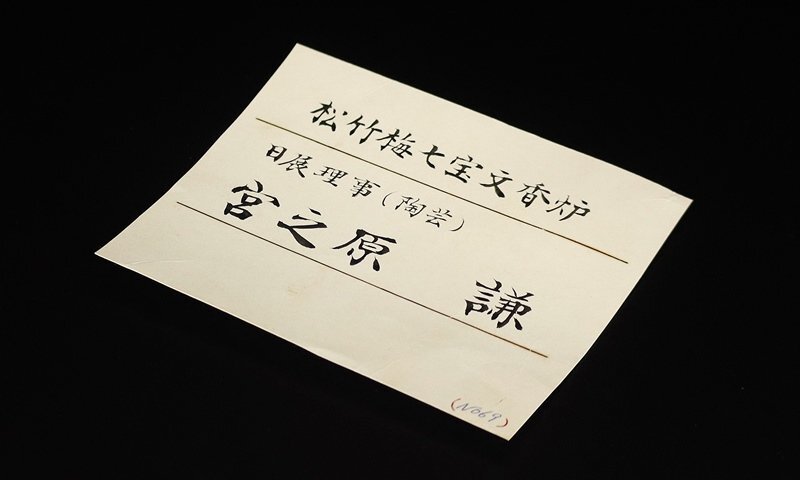 松竹梅七宝文香炉
日展理事(陶芸)
宮之原 謙
(No69)